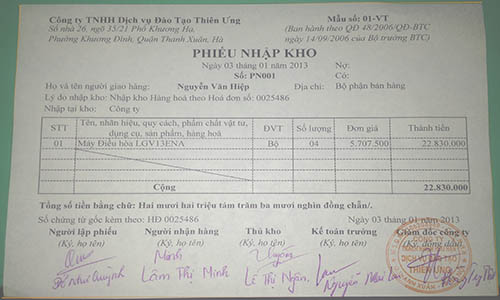 Công ty TNHH Dịch vụ Đào Tạo Thiên Ưng
Mẫu số: 01-VT
Số nhà 26, ngõ 35/21 Phố Khương Hạ,
(Ban hành theo QĐ 48/2006/QĐ-BTC
Phường Khương Đình, Quận Thanh Xuân, Hà
ngày 14/09/2006 của Bộ trưởng BTC)
PHIẾU NHẬP KHO
Ngày 03 tháng 01 năm 2013
Nợ:
Số: PN001
Có:
Họ và tên người giao hàng: Nguyễn Văn Hiệp
Địa chỉ: Bộ phận bán hàng
Lý do nhập kho: Nhập kho Hàng hoá theo Hoá đơn số: 0025486
Nhập tại kho: Công ty
STT
Tên, nhãn hiệu, quy cách, phẩm chất vật tư, dụng cụ, sản phẩm, hàng hoá
ĐVT
Số lượng
Đơn giá
Thành tiền
01 Máy Điều hòa LGV13ENA Bộ 04 5.707.500 22.830.000
Cộng 22.830.000
Tổng số tiền bằng chữ: Hai mươi hai triệu tám trăm ba mươi nghìn đồng chẵn/.
Số chứng từ gốc kèm theo: HĐ 0025486
Ngày 03 tháng 01 năm 2013
Người lập phiếu Người nhận hàng Thủ kho Kế toán trưởng Giám đốc công ty
(Ký, họ tên) (Ký, họ tên) (Ký, họ tên) (Ký, họ tên) (Ký, đóng dấu)
Minh
DỊCH VỤ ĐÀO TẠO
THIÊN ƯNG
Như Quỳnh
Lâm Thị Minh
Lê Thị Ngân
Nguyễn